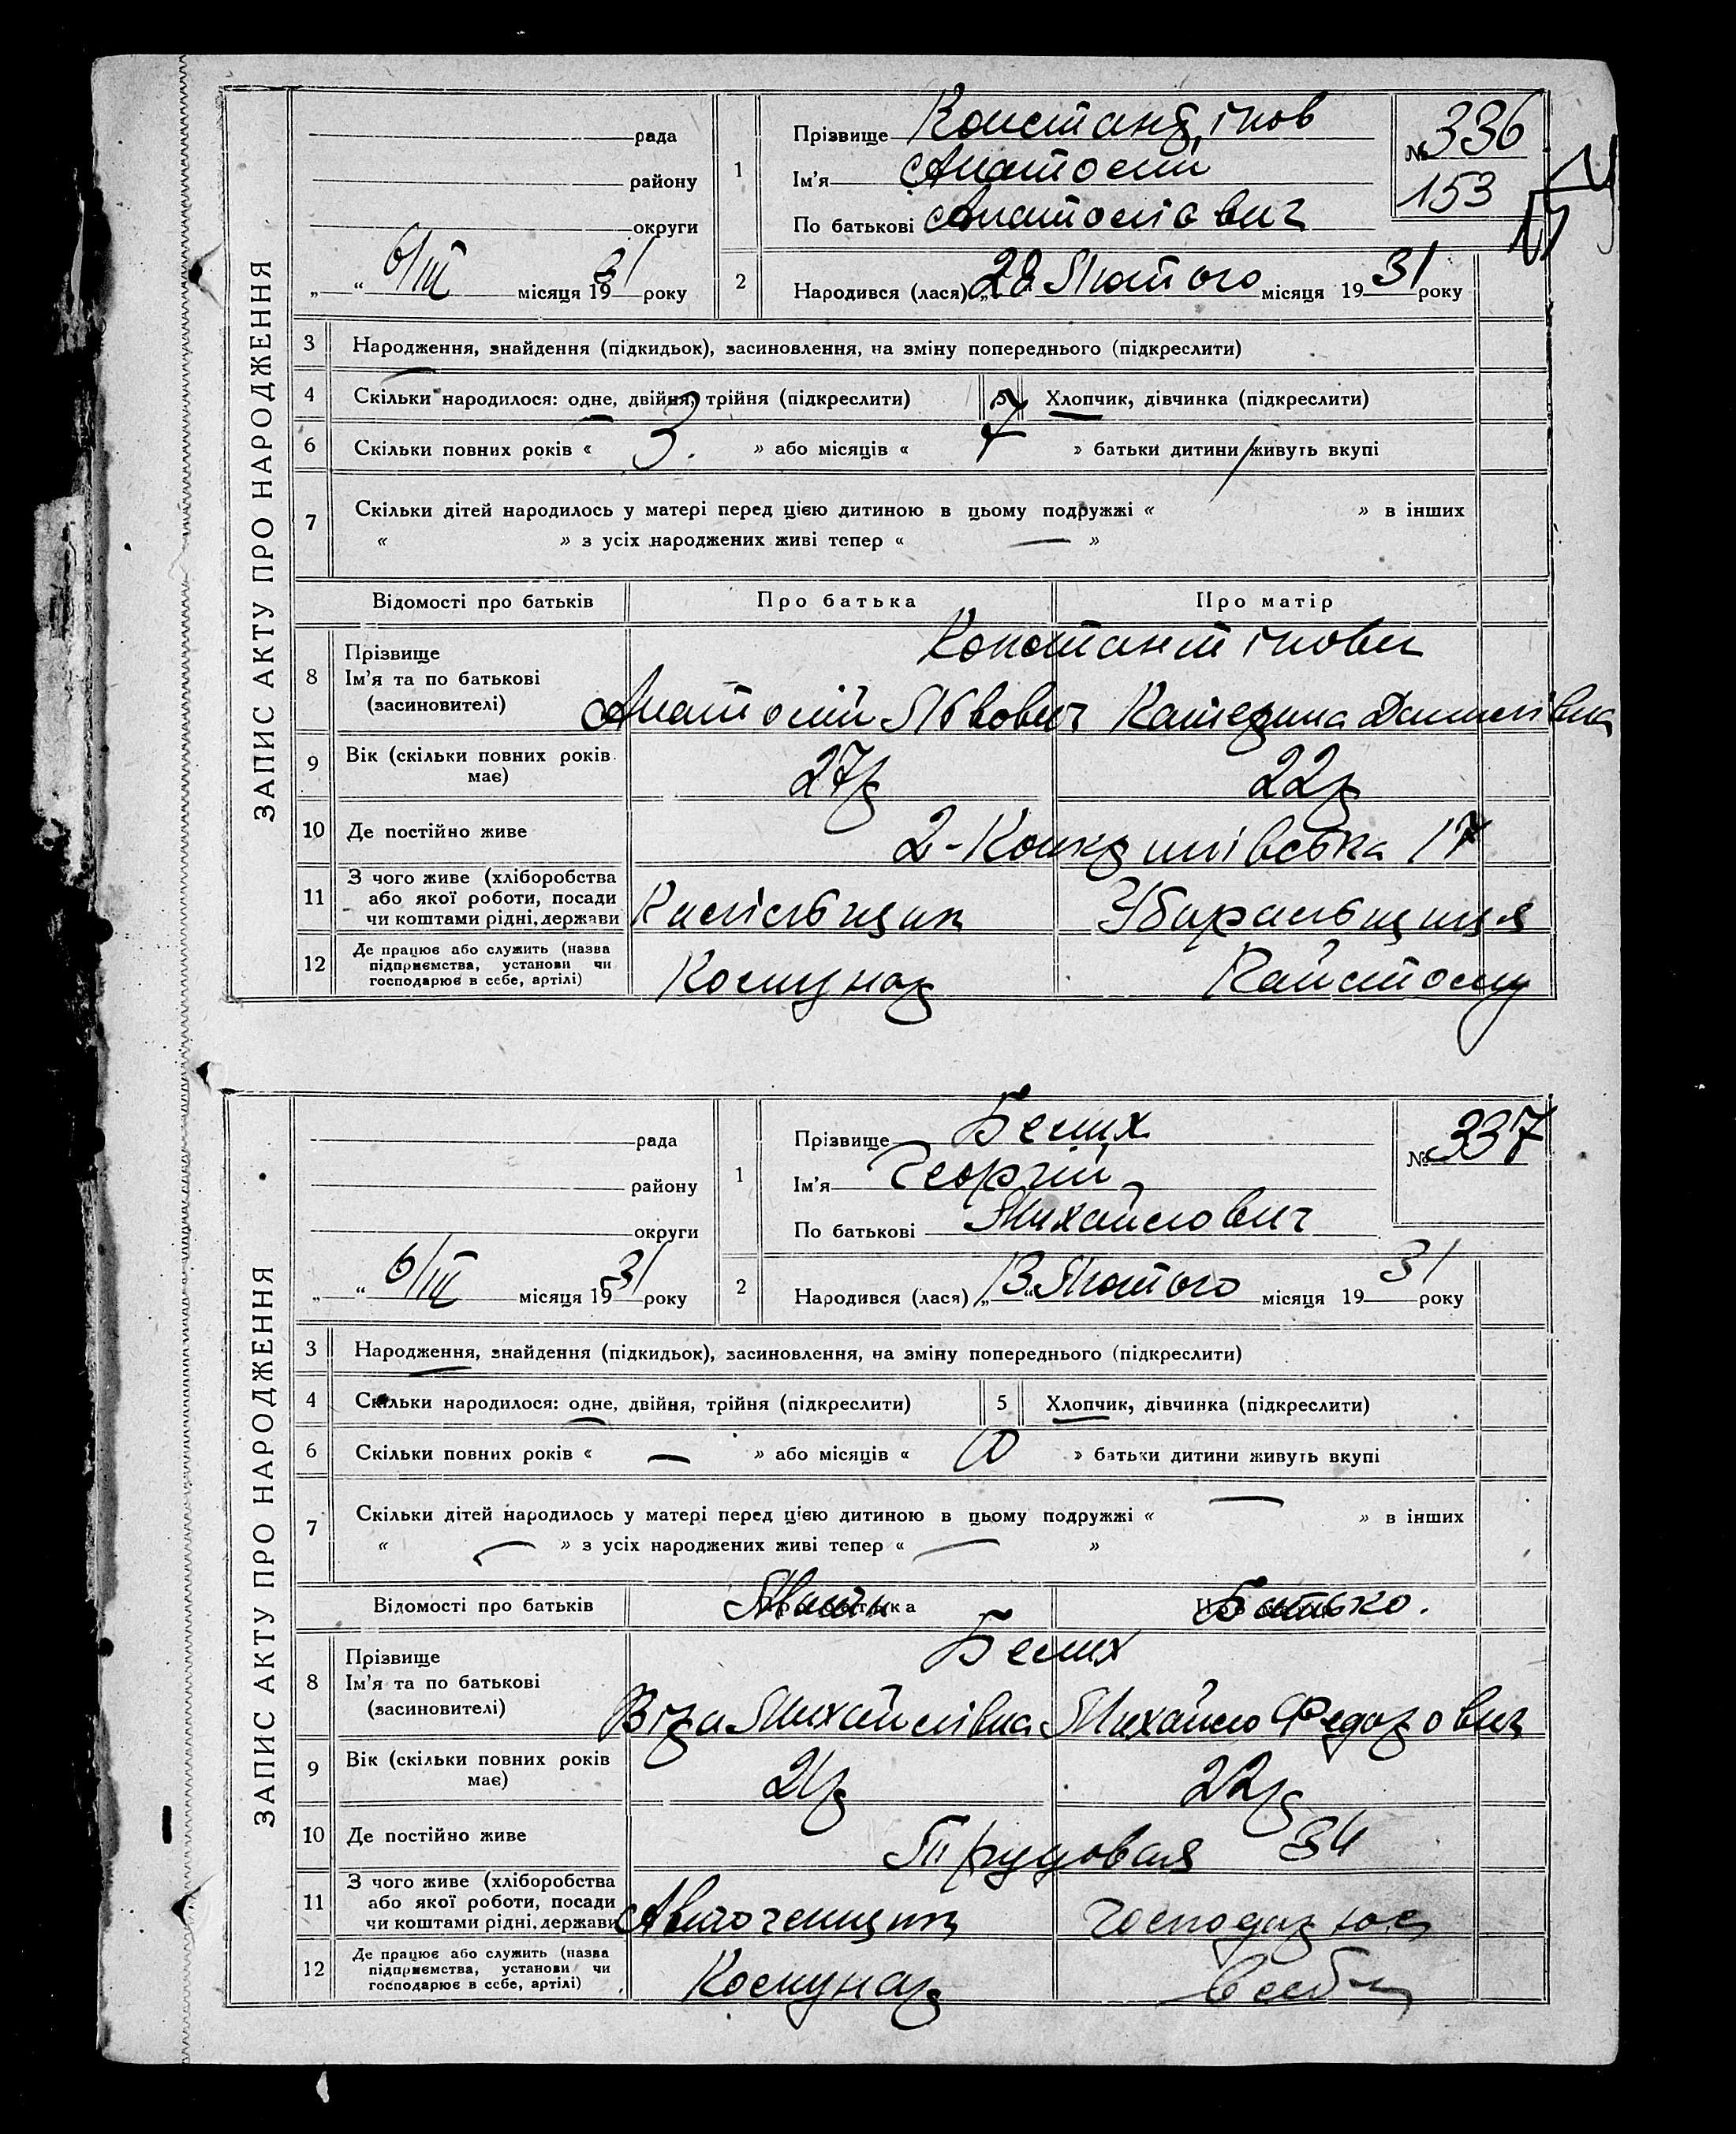 ЗАПИС АКТУ ПРО НАРОДЖЕННЯ
рада
району
округи
„ “ 6/III місяця 1931 року
1
Прізвище Константінов
Ім’я Анатолій
По батькові Анатолієвич
№ 336
153
2
Народився (лася) „28 Лютого місяця 1931 року
3 Народження, знайдення (підкидьок), засиновлення, на зміну попереднього (підкреслити)
4 Скільки народилося: одне, двійня, трійня (підкреслити) 5 Хлопчик, дівчинка (підкреслити)
6 Скільки повних років « 3. » або місяців « 7 » батьки дитини живуть вкупі
7 Скільки дітей народилось у матері перед цією дитиною в цьому подружжі « » в інших
« » з усіх народжених живі тепер « — »
Відомості про батьків Про батька Про матір
8 Прізвище
Ім’я та по батькові
(засновителі)
Константінови
Анатолій Львович Катерина Данилівна
9 Вік (скільки повних років має) 27р 22р
10 Де постійно живе 17
11 З чого живе (хліборобства або якої роботи, посади чи коштами рідні, держави
12 Де працює або служить (назва підприємства, установи чи господарює в себе, артілі) Комунар
ЗАПИС АКТУ ПРО НАРОДЖЕННЯ
рада
району
округи
„ “ 6/III місяця 1931 року
1
Прізвище Белих
Ім’я Георгій
По батькові Михайлович
№ 337
2
Народився (лася) „13“ Лютого місяця 1931 року
3 Народження, знайдення (підкидьок), засиновлення, на зміну попереднього (підкреслити)
4 Скільки народилося: одне, двійня, трійня (підкреслити) 5 Хлопчик, дівчинка (підкреслити)
6 Скільки повних років « — » або місяців « » батьки дитини живуть вкупі
7 Скільки дітей народилось у матері перед цією дитиною в цьому подружжі « — » в інших
« — » з усіх народжених живі тепер « — »
Відомості про батьків Мати Батько.
8 Прізвище
Ім’я та по батькові
(засиновителі)
Белих
Віра Михайлівна Михайло Федорович
9 Вік (скільки повних років має) 21р 22р
10 Де постійно живе Трудовая 34
11 З чого живе (хліборобства або якої роботи, посади чи коштами рідні, держави господарює
12 Де працює або служить (назва підприємства, установи чи господарює в себе, артілі) Комунар в себе